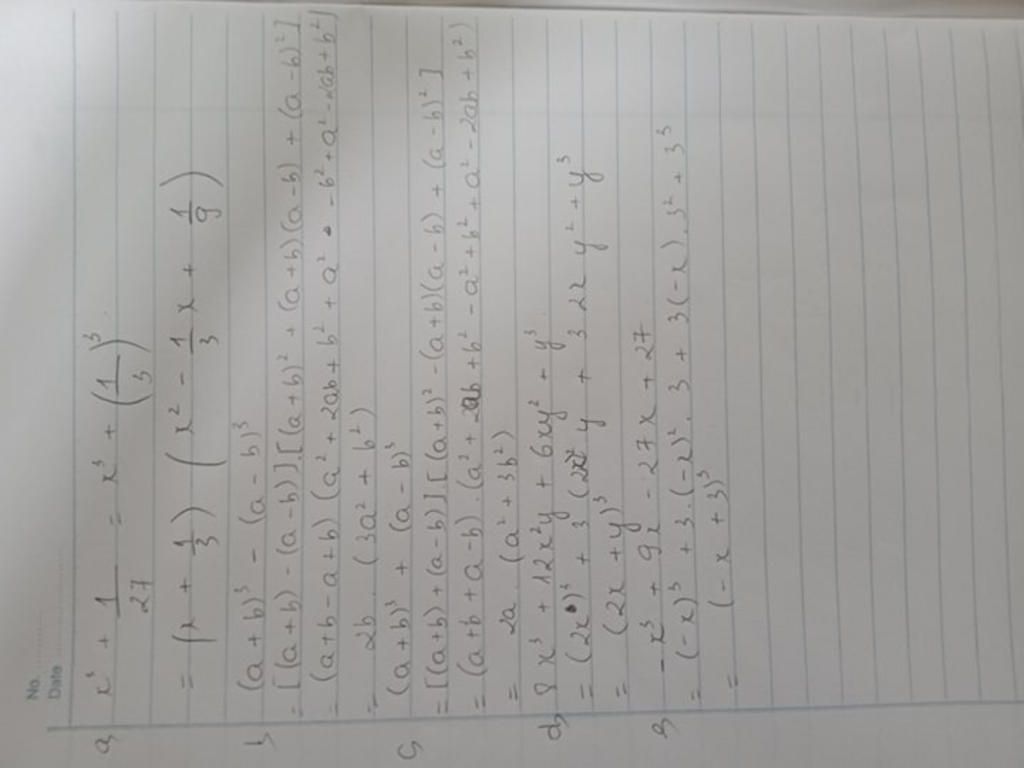 No.
Date
a) x³ + 1/27 = x³ + (1/3)³
= (x + 1/3) (x² - 1/3 x + 1/9)
b) (a+b)³ - (a-b)³
= [(a+b) - (a-b)][(a+b)² + (a+b)(a-b) + (a-b)²]
= (a+b-a+b) (a² + 2ab + b² + a² - b² + a² - 2ab + b²)
= 2b. (3a² + b²)
c) (a+b)³ + (a-b)³
= [(a+b) + (a-b)][(a+b)² - (a+b)(a-b) + (a-b)²]
= (a+b+a-b). (a² + 2ab + b² - a² + b² + a² - 2ab + b²)
= 2a. (a² + 3b²)
d) 8x³ + 12x²y + 6xy² + y³
= (2x)³ + 3(2x)² y + 3 2x y² + y³
= (2x + y)³
e) -x³ + 9x - 27x + 27
= (-x)³ + 3.(-x)². 3 + 3(-x).3² + 3³
= (-x + 3)³